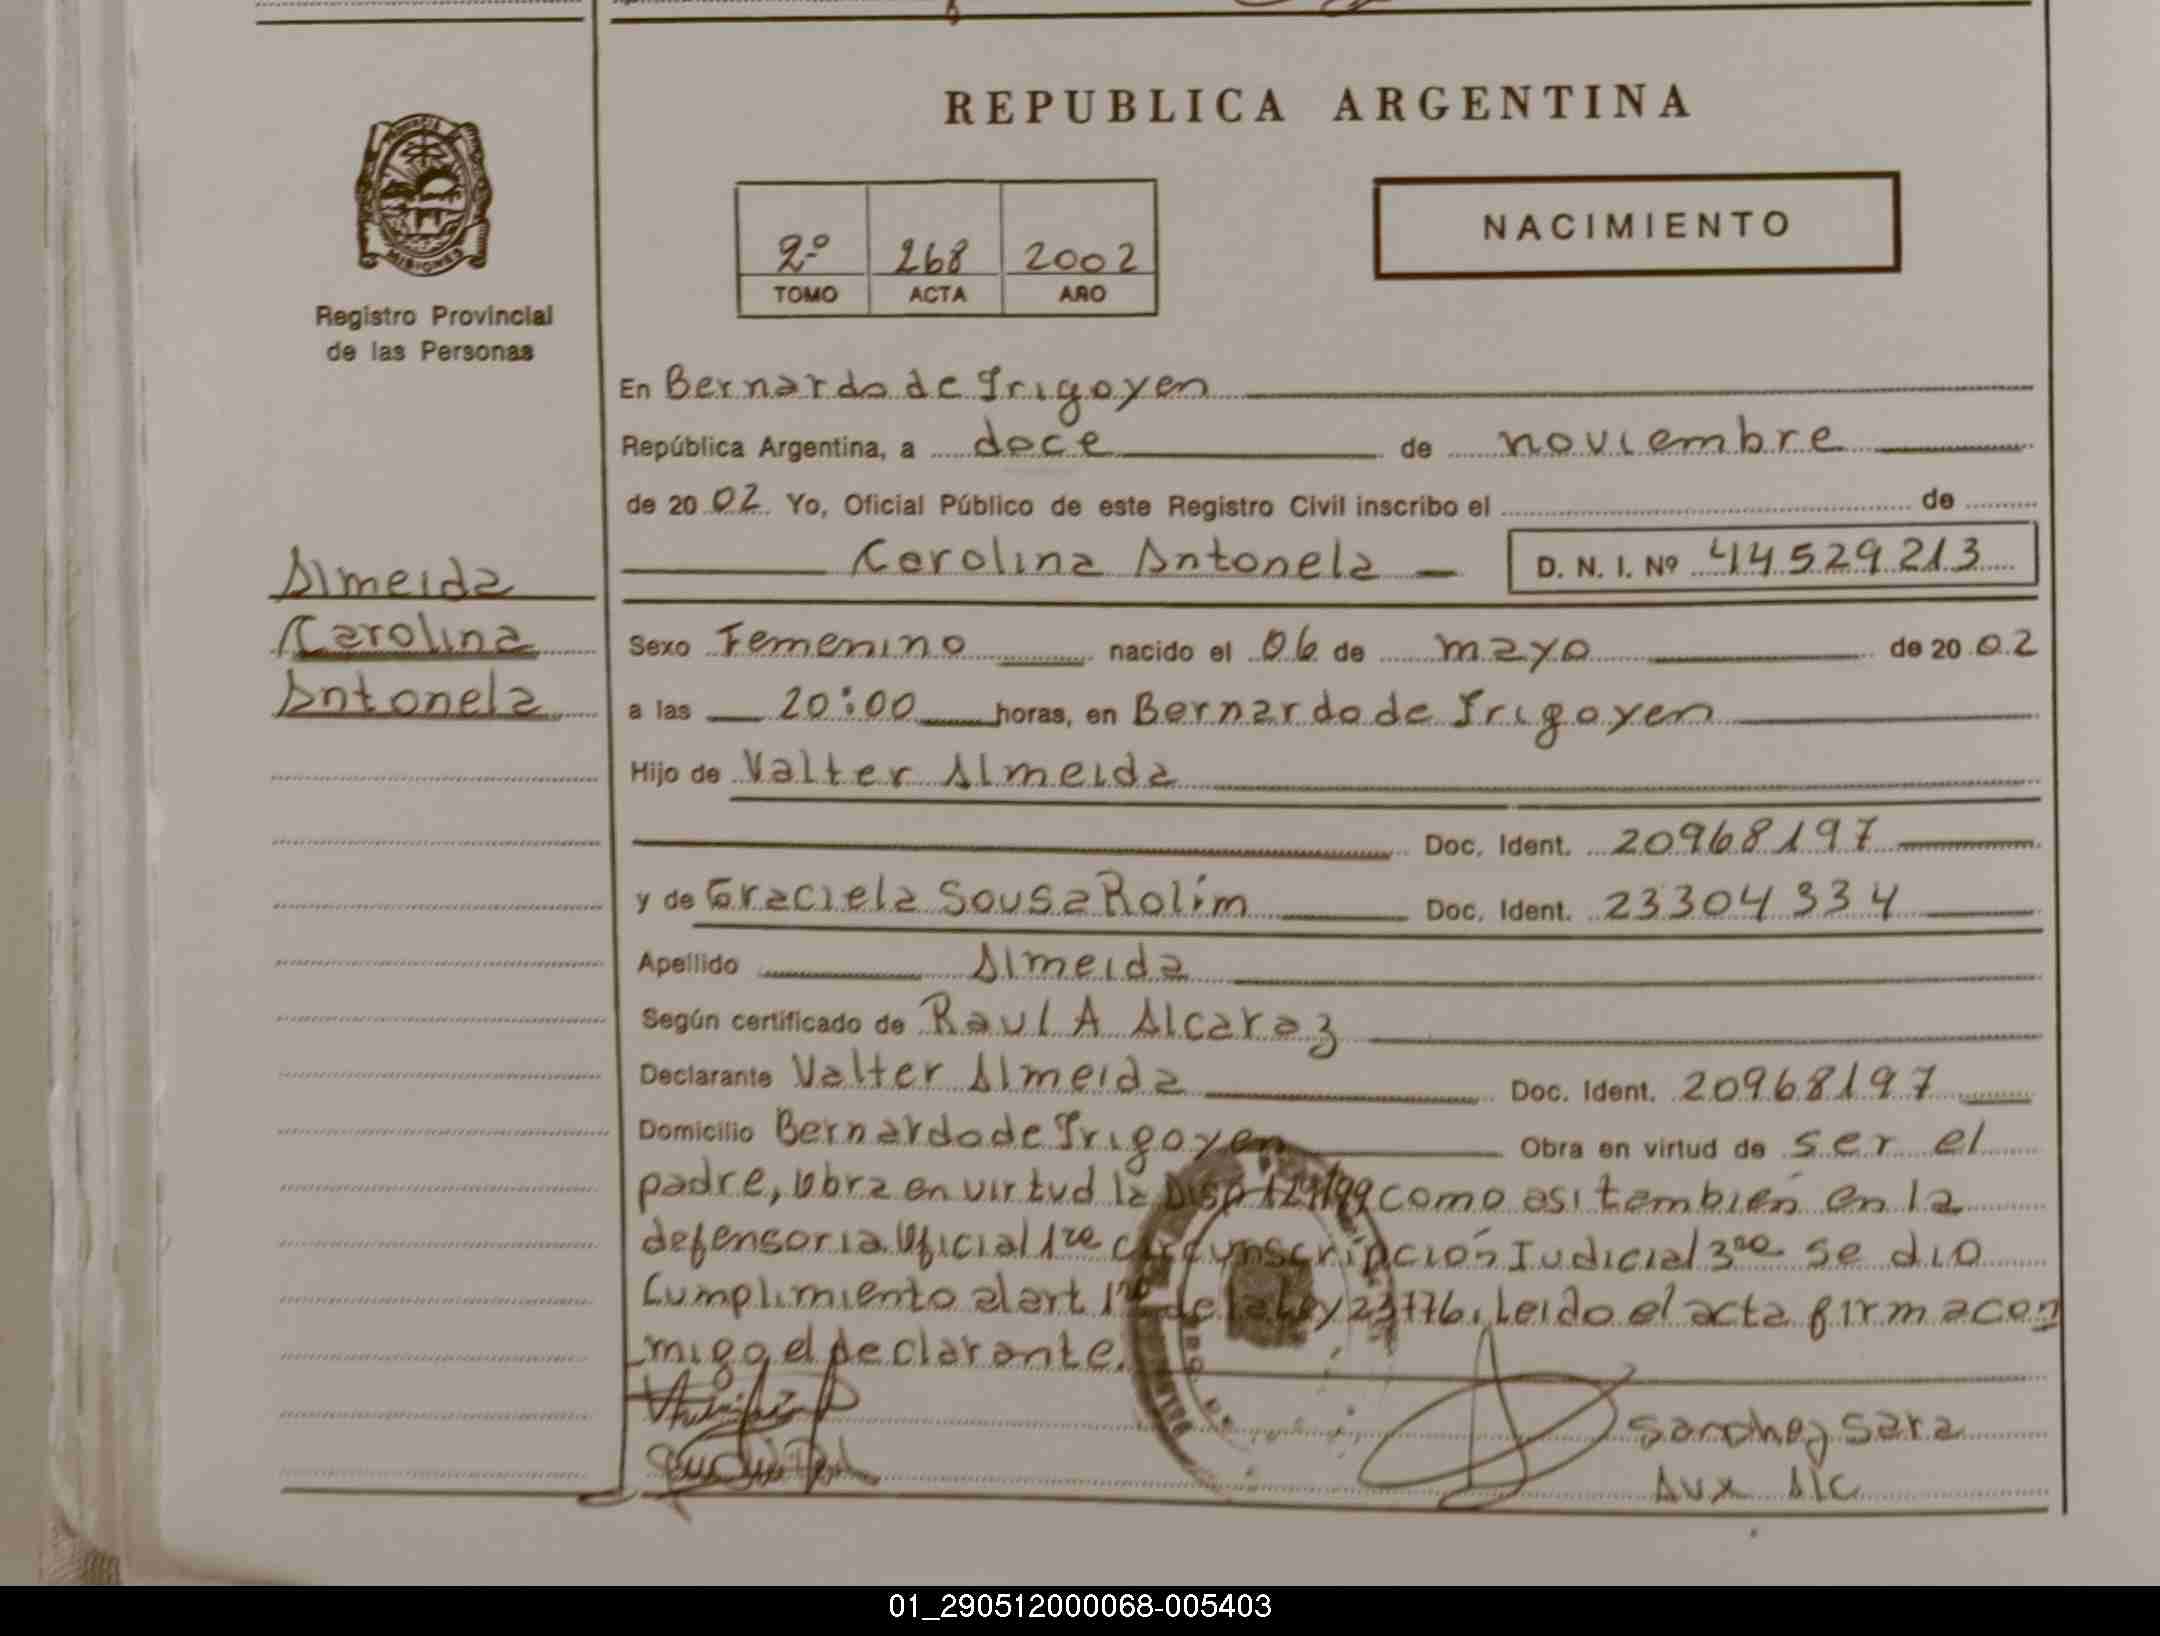 REPUBLICA ARGENTINA
PROVINCIA
MISIONES
Registro Provincial
de las Personas
2º 268 2002
TOMO ACTA AÑO
NACIMIENTO
En Bernardo de Irigoyen
República Argentina, a doce de noviembre
de 20 02 Yo, Oficial Público de este Registro Civil inscribo el de
Carolina Antonela D. N. I. Nº 44529213
Almeida
Carolina
Antonela
Sexo Femenino nacido el 06 de mayo de 20 02
a las 20:00 horas, en Bernardo de Irigoyen
Hijo de Valter Almeida
Doc. Ident. 20968197
y de Graciela Sousa Rolim Doc. Ident. 23304334
Apellido Almeida
Según certificado de Raul A Alcaraz
Declarante Valter Almeida Doc. Ident. 20968197
Domicilio Bernardo de Irigoyen Obra en virtud de ser el
padre, Obra en virtud la Disp 124/99 como asi tambien en la
defensoria Oficial 1ra circunscripción Judicial 3ra se dio
Cumplimiento al art 1ro de la Ley 23776. Leido el acta firma con
migo el declarante.
Sanchez Sara
Aux A/c
01_290512000068-005403